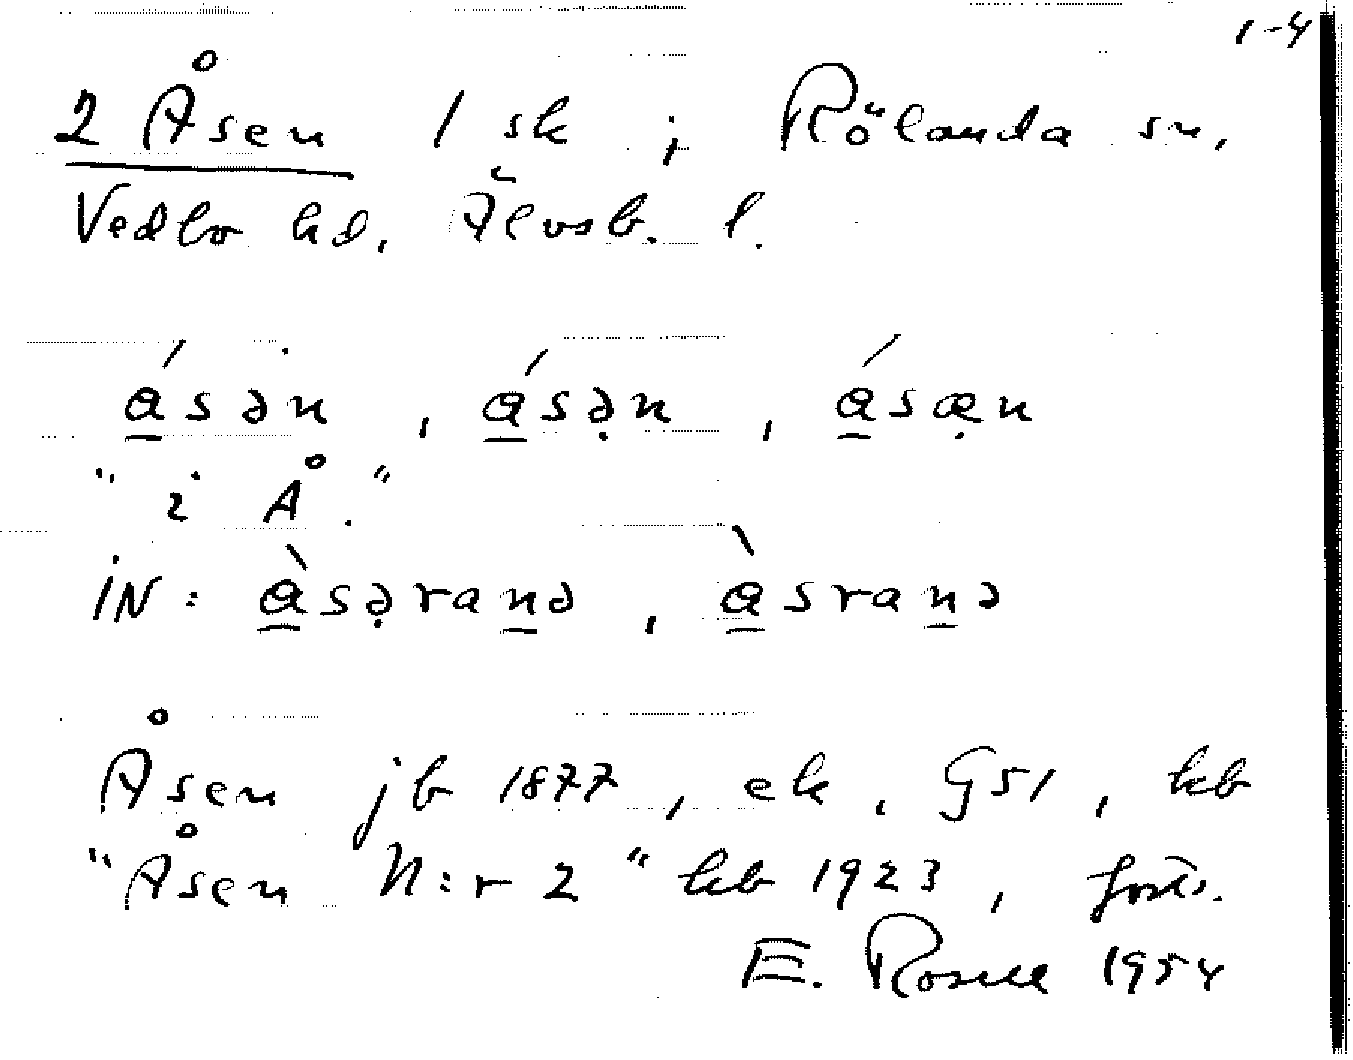 1-4
2 Åsen 1 sk ; Rölanda sn,
Vedbo hd, Älvsb. l.
ɑ́sən , ɑ́sə̣n , ɑ́sæ̣n
" i Å . "
iN: ɑ̀sə̣ranə , ɑ̀sranə
Åsen jb 1877 , ek , G51 , kb
"Åsen N:r 2 " kb 1923 , forts.
E. Rosell 1954